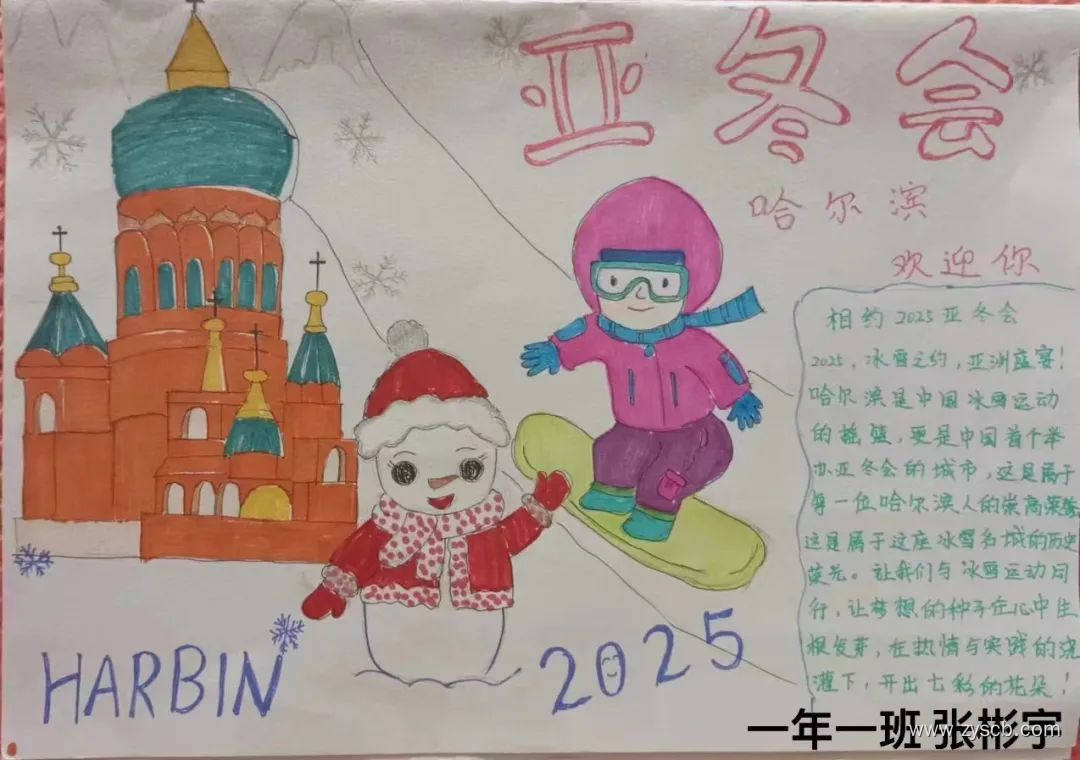 亚冬会
哈尔滨
欢迎你
相约2025亚冬会
2025，冰雪之约，亚洲盛宴！
哈尔滨是中国冰雪运动
的摇篮，更是中国首个举
办亚冬会的城市，这是属于
每一位哈尔滨人的崇高荣誉
这是属于这座冰雪名城的历史
荣光。让我们与冰雪运动同
行，让梦想的种子在心中生
根发芽，在热情与实践的浇
灌下，开出七彩的花朵！
HARBIN
2025
一年一班 张彬宇
www.zyscb.com